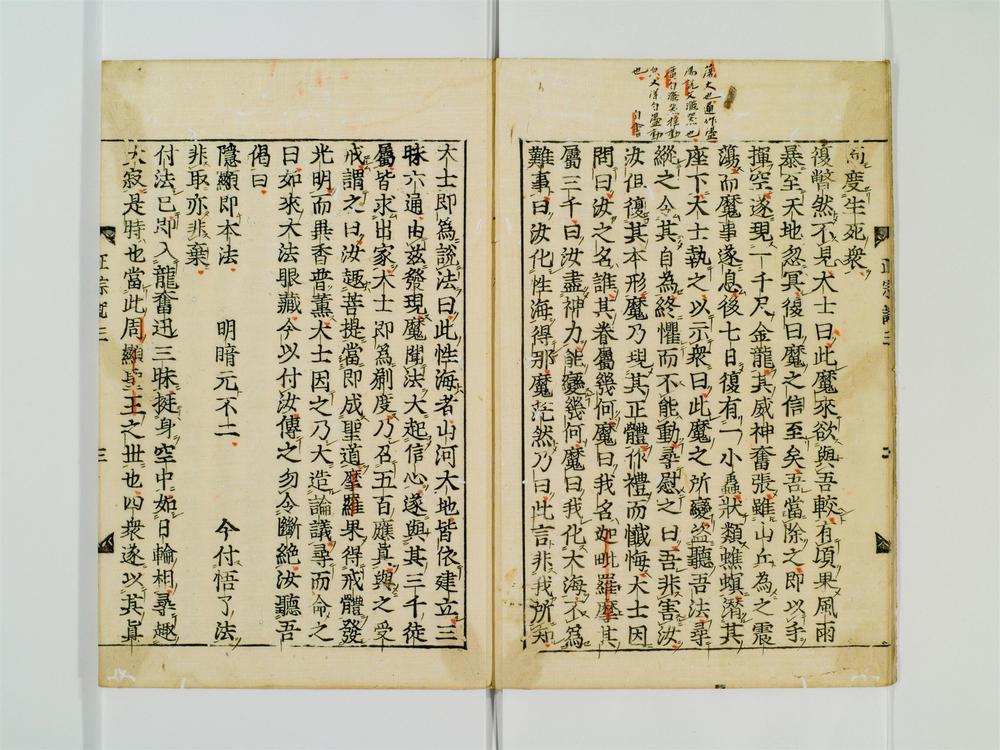 向度生死衆
復瞥然不見大士曰此魔來欲與吾較有頃果風雨
暴至天地忽冥復曰魔之信至矣吾當除之即以手
揮空遂現一千尺金龍其威神奮張雖山丘為之震
蕩而魔事遂息後七日復有一小蟲狀類蟭螟潛其
座下大士執之以示衆曰此魔之所變盗聽吾法尋
縱之令其自為終懼而不能動尋慰之曰吾非害汝
汝但復其本形魔乃現其正體作禮而懺悔大士因
問曰汝之名誰其眷屬幾何魔曰我名迦毗羅摩其
屬三千曰汝盡神力能變幾何魔曰我化大海不為
難事曰汝化性海得那魔茫然乃曰此言非我所知
正宗記三
大士即為說法曰此性海者山河大地皆依建立三
昧六通由茲發現魔聞法大起信心遂與其三千徒
屬皆求出家大士即為剃度乃召五百應真與之受
戒謂之曰汝趣菩提當即成聖道摩羅果得戒體發
光明而異香普薰大士因之乃大造論議尋而命之
曰如來大法眼藏今以付汝傳之勿令斷絕汝聽吾
偈曰
隱顯即本法 明暗元不二 今付悟了法
非取亦非棄
付法已即入龍奮迅三昧挺身空中如日輪相尋趣
大寂是時也當此周顯聖王之世也四衆遂以其真
正宗記三
三